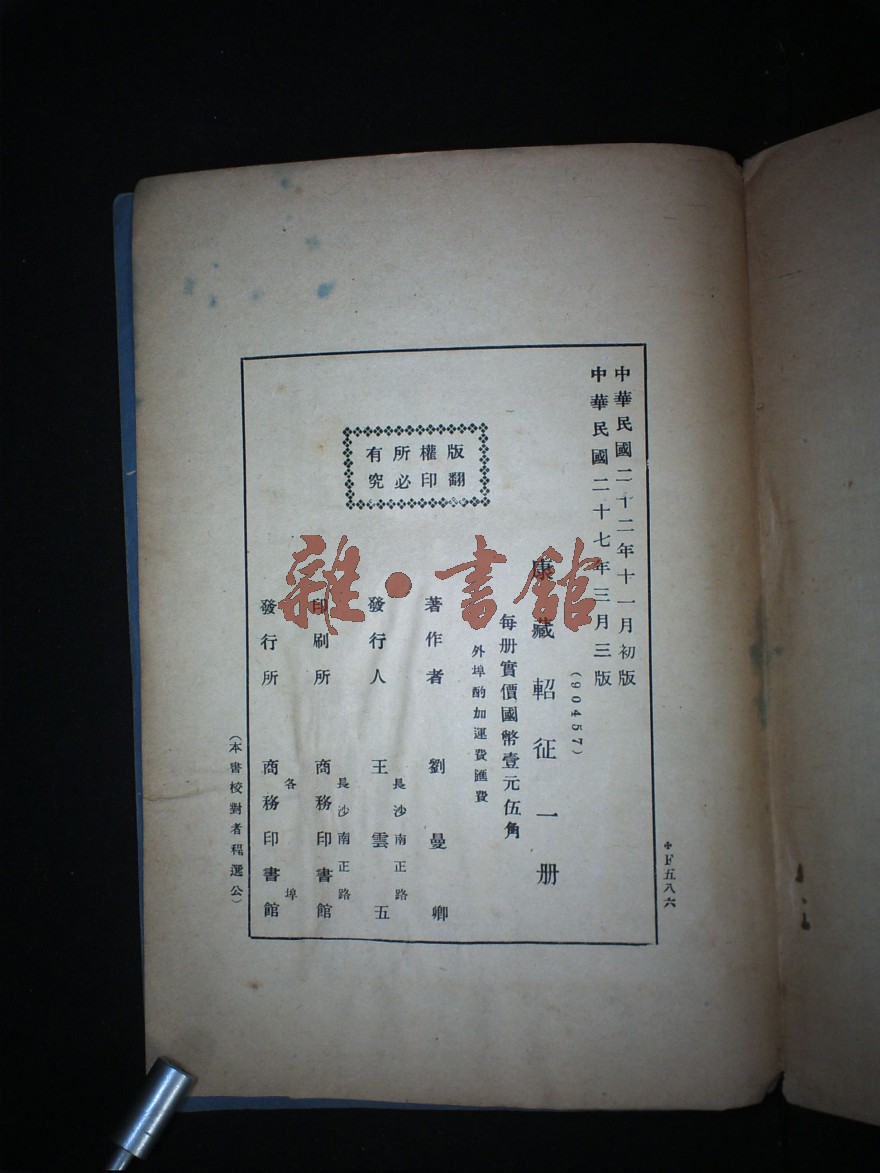 中華民國二十二年十一月初版
中華民國二十七年三月三版
(90457)
康藏軺征一册
每册實價國幣壹元伍角
外埠酌加運費匯費
版權所有
翻印必究
著作者 劉曼卿
長沙南正路
發行人 王雲五
長沙南正路
印刷所 商務印書館
各埠
發行所 商務印書館
(本書校對者程選公)
F五八六
雜·書館